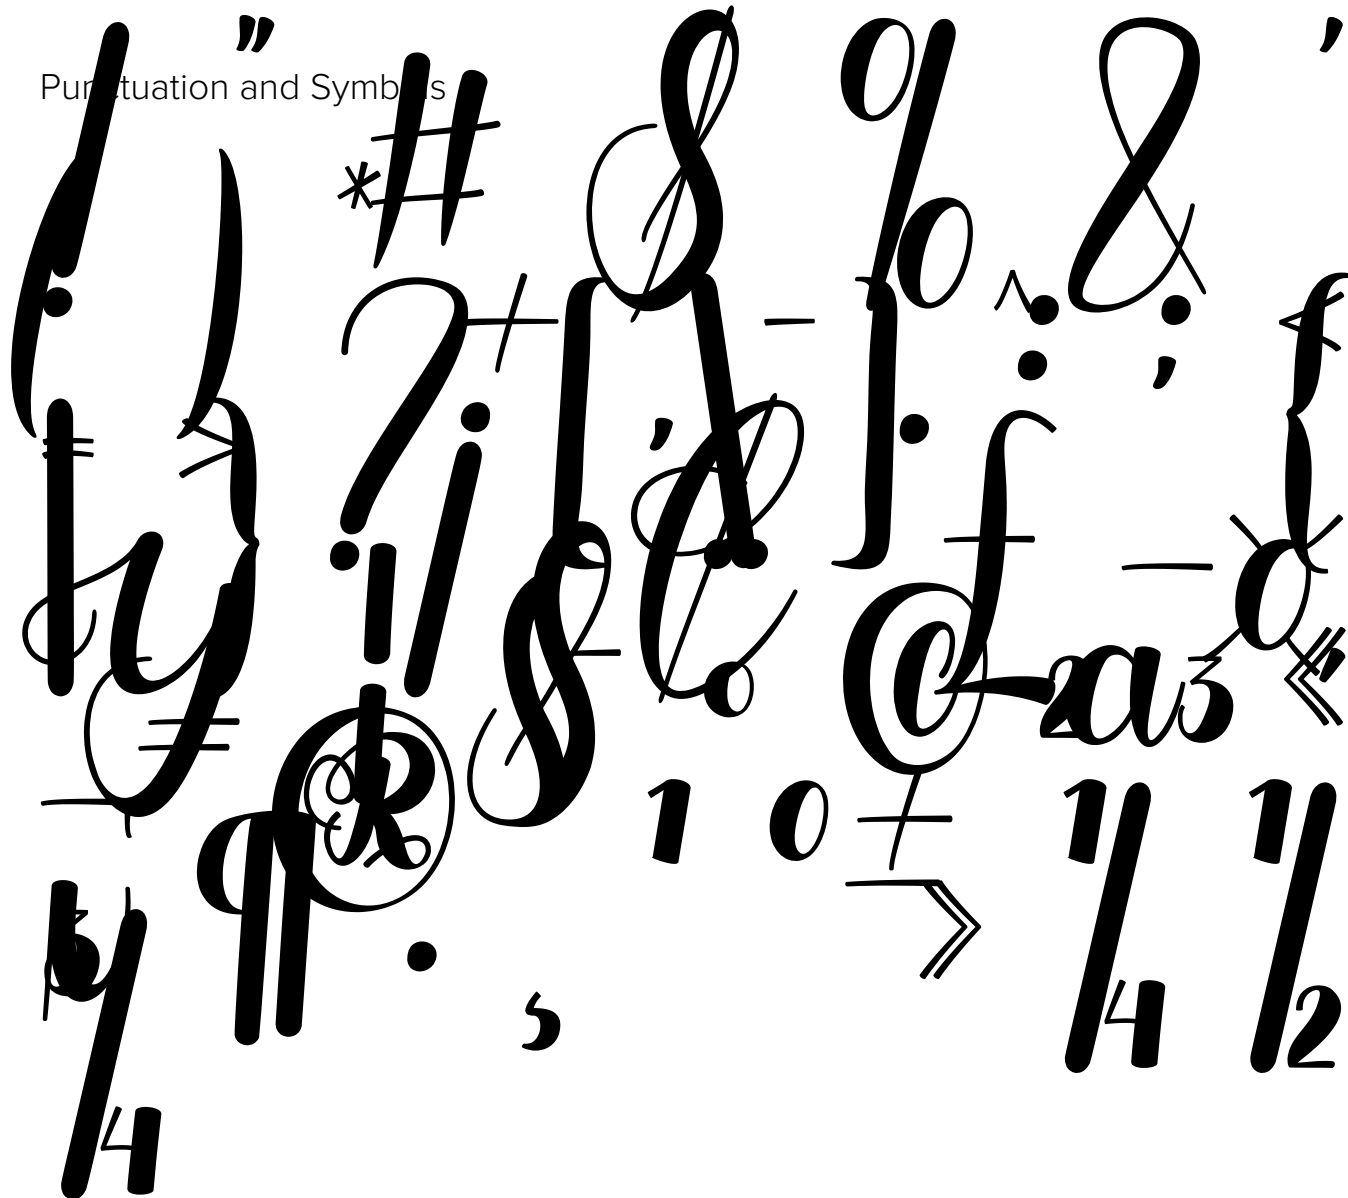 Punctuation and Symbols
! " # $ % & '
( ) * + , - . / : ; <
= > ? [ \ ] ^ _ {
| } ¡ ¢ £ ¤
¥ ¦ § © ª «
¬ ® ¯ ° ± ² ³ ´
µ ¶ · ¸ ¹ º » ¼ ½
¾